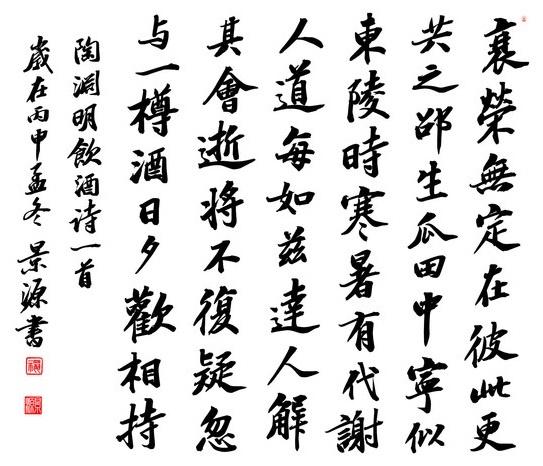 衰榮無定在彼此更
共之邵生瓜田中寧似
東陵時寒暑有代謝
人道每如茲達人解
其會逝將不復疑忽
与一樽酒日夕歡相持
陶淵明飲酒诗一首
歲在丙申孟冬景源書